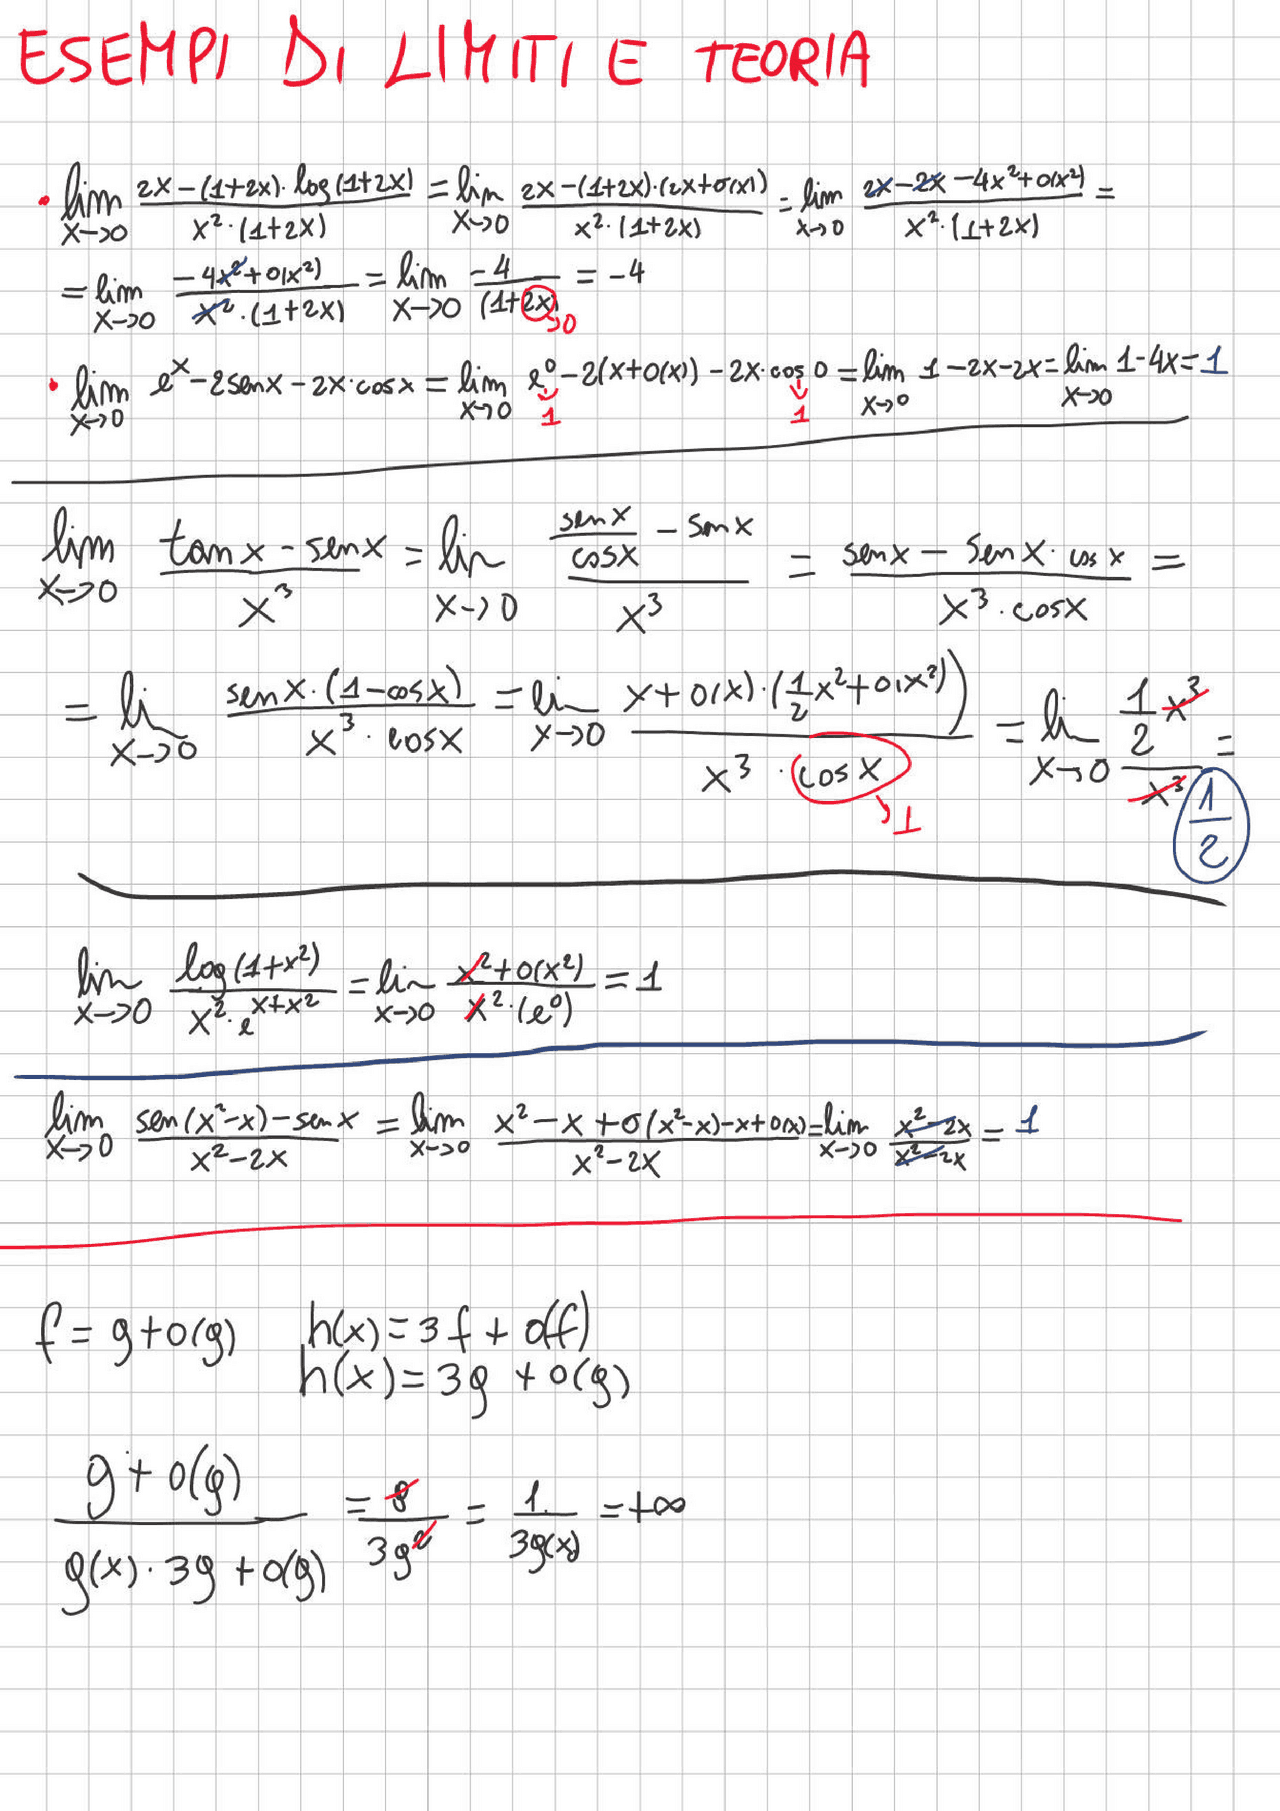 ESEMPI DI LIMITI E TEORIA
• lim x→0 (2x-(1+2x)·log(1+2x))/(x²·(1+2x)) = lim x→0 (2x-(1+2x)·(2x+o(x)))/(x²·(1+2x)) = lim x→0 (2x-2x-4x²+o(x²))/(x²·(1+2x)) =
= lim x→0 (-4x²+o(x²))/(x²·(1+2x)) = lim x→0 -4/(1+2x) = -4
→0
• lim x→0 eˣ-2senx-2x·cosx = lim x→0 e⁰-2(x+o(x))-2x·cos0 = lim x→0 1-2x-2x = lim x→0 1-4x = 1
↓1 ↓1
lim x→0 (tanx-senx)/x³ = lim x→0 (senx/cosx - senx)/x³ = (senx-senx·cosx)/(x³·cosx) =
= lim x→0 (senx·(1-cosx))/(x³·cosx) = lim x→0 (x+o(x)·(1/2x²+o(x²)))/(x³·cosx) = lim x→0 (1/2 x³)/x³ = 1/2
→1
lim x→0 log(1+x²)/(x²·e^(x+x²)) = lim x→0 (x²+o(x²))/(x²·(e⁰)) = 1
lim x→0 (sen(x²-x)-senx)/(x²-2x) = lim x→0 (x²-x+o(x²-x)-x+o(x))/(x²-2x) = lim x→0 (x²-2x)/(x²-2x) = 1
f = g+o(g) h(x)=3f+o(f)
h(x)=3g+o(g)
(g+o(g))/(g(x)·3g+o(g)) = g/(3g²) = 1/(3g(x)) = +∞